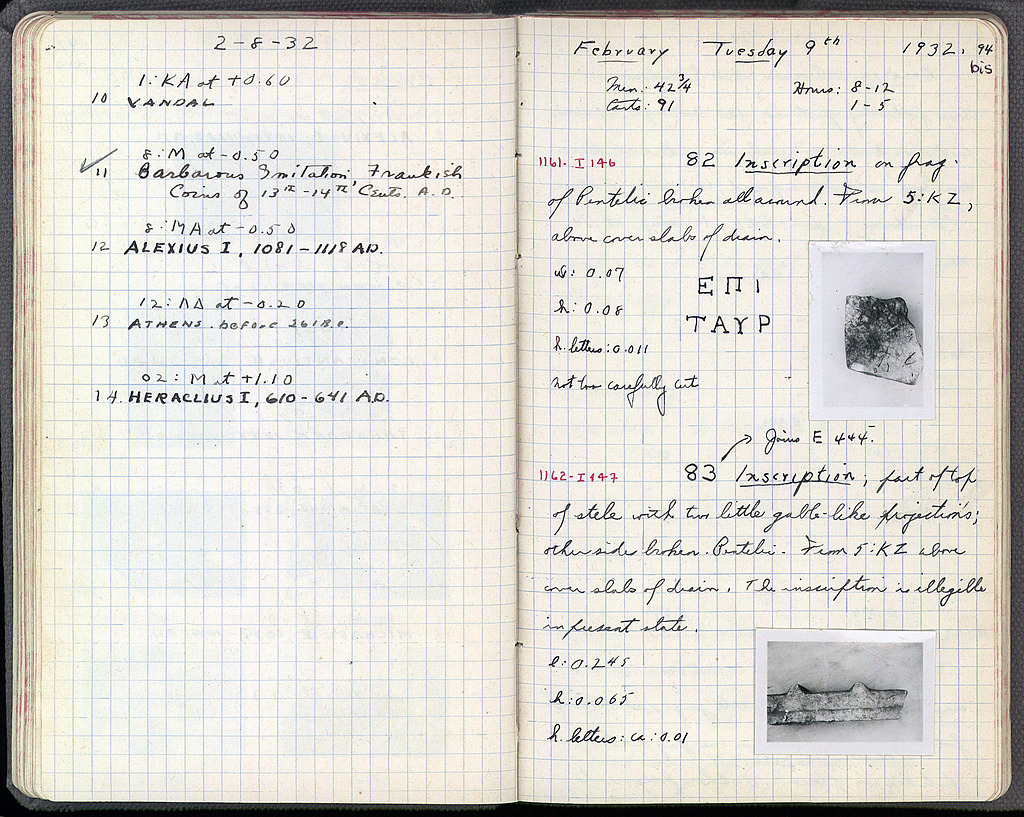 2-8-32
1: KA at +0.60
10 VANDAL
8: M at -0.50
11 Barbarous Imitation, Frankish
Coins of 13th-14th Cents. A.D.
8: MA at -0.50
12 ALEXIUS I, 1081-1118 A.D.
12: ΛΔ at -0.20
13 ATHENS. before 261 B.C.
02: M at +1.10
14. HERACLIUS I, 610-641 A.D.
February Tuesday 9th 1932. 94
bis
Men: 42 3/4 Hours: 8-12
Carts: 91 1-5
1161-I 146 82 Inscription on frag.
of Pentelic broken all around. From 5: KZ,
above cover slabs of drain.
w: 0.07
h: 0.08
h. letters: 0.011
not too carefully cut
ΕΠΙ
ΤΑΥΡ
Joins E 444.
1162-I 147 83 Inscription; part of top
of stele with two little gable-like projections;
other sides broken. Pentelic. From 5: KZ above
cover slabs of drain. The inscription is illegible
in present state.
l: 0.245
h: 0.065
h. letters: ca: 0.01